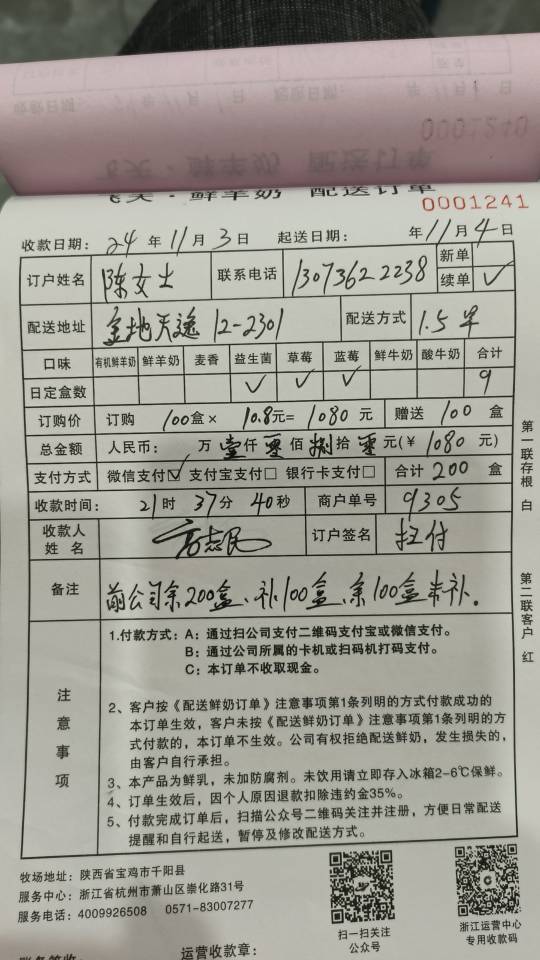 飞天·鲜羊奶 配送订单
0001240
飞天·鲜羊奶 配送订单
0001241
收款日期: 24 年 11 月 3 日 起送日期: 年 11 月 4 日
订户姓名 陈女士 联系电话 13073622238 新单
续单 ✓
配送地址 金地天逸 12-2301 配送方式 1.5早
口味 有机鲜羊奶 鲜羊奶 麦香 益生菌 草莓 蓝莓 鲜牛奶 酸牛奶 合计
日定盒数 ✓ ✓ ✓ 9
订购价 订购 100盒× 10.8元= 1080 元 赠送 100 盒
总金额 人民币: 万 壹仟 零佰 捌拾 零元(¥ 1080 元)
支付方式 微信支付☑ 支付宝支付□ 银行卡支付□ 合计 200 盒
收款时间: 21时 37分 40秒 商户单号 9305
收款人
姓 名 方志民 订户签名 扫付
备注 前公司余200盒、补100盒、余100盒未补。
第一联存根 白
第二联客户 红
注意事项
1.付款方式: A: 通过扫公司支付二维码支付宝或微信支付。
B: 通过公司所属的卡机或扫码机打码支付。
C: 本订单不收取现金。
2、客户按《配送鲜奶订单》注意事项第1条列明的方式付款成功的
本订单生效,客户未按《配送鲜奶订单》注意事项第1条列明的方
式付款的,本订单不生效。公司有权拒绝配送鲜奶,发生损失的,
由客户自行承担。
3、本产品为鲜乳,未加防腐剂。未饮用请立即存入冰箱2-6℃保鲜。
4、订单生效后,因个人原因退款扣除违约金35%。
5、付款完成订单后,扫描公众号二维码关注并注册,方便日常配送
提醒和自行起送,暂停及修改配送方式。
牧场地址: 陕西省宝鸡市千阳县
服务中心: 浙江省杭州市萧山区崇化路31号
服务电话: 4009926508 0571-83007277
扫一扫关注
公众号
浙江运营中心
专用收款码
运营收款章: